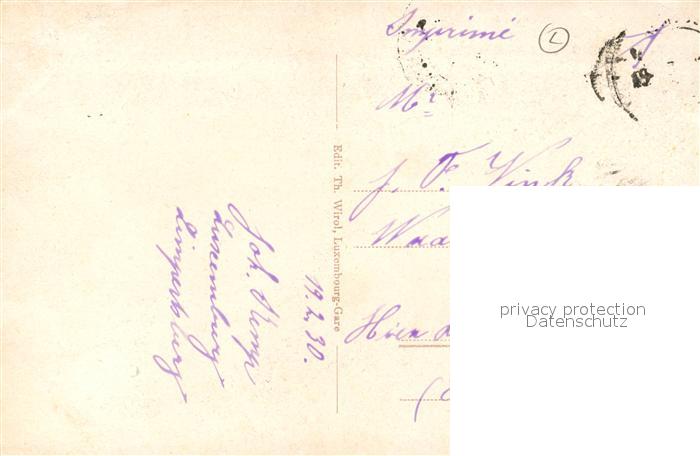 Imprimé
L
Mr
J. F. Vink
Hier
(
Edit. Th. Wirol, Luxembourg-Gare
Joh. Kemp
Luxemburg
Limpertsberg
19. 2. 30.
privacy protection
Datenschutz